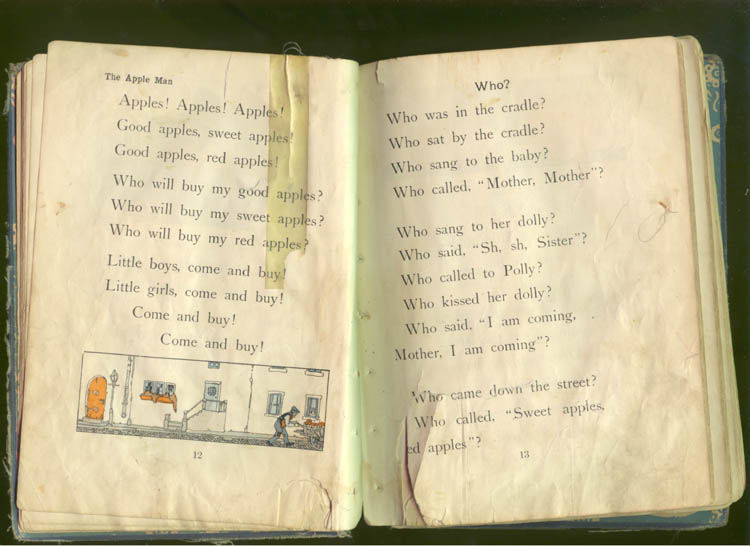 The Apple Man
Apples! Apples! Apples!
Good apples, sweet apples!
Good apples, red apples!
Who will buy my good apples?
Who will buy my sweet apples?
Who will buy my red apples?
Little boys, come and buy!
Little girls, come and buy!
Come and buy!
Come and buy!
12
Who?
Who was in the cradle?
Who sat by the cradle?
Who sang to the baby?
Who called, “Mother, Mother”?
Who sang to her dolly?
Who said, “Sh, sh, Sister”?
Who called to Polly?
Who kissed her dolly?
Who said, “I am coming,
Mother, I am coming”?
Who came down the street?
Who called, “Sweet apples,
ed apples”?
13